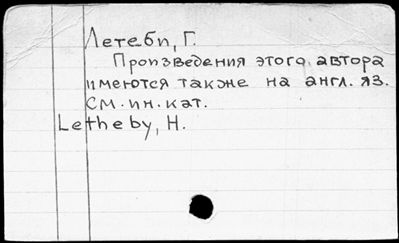 Летеби, Г.
Произведения этого автора
имеются также на англ. яз.
См. ин. кат.
Letheby, H.